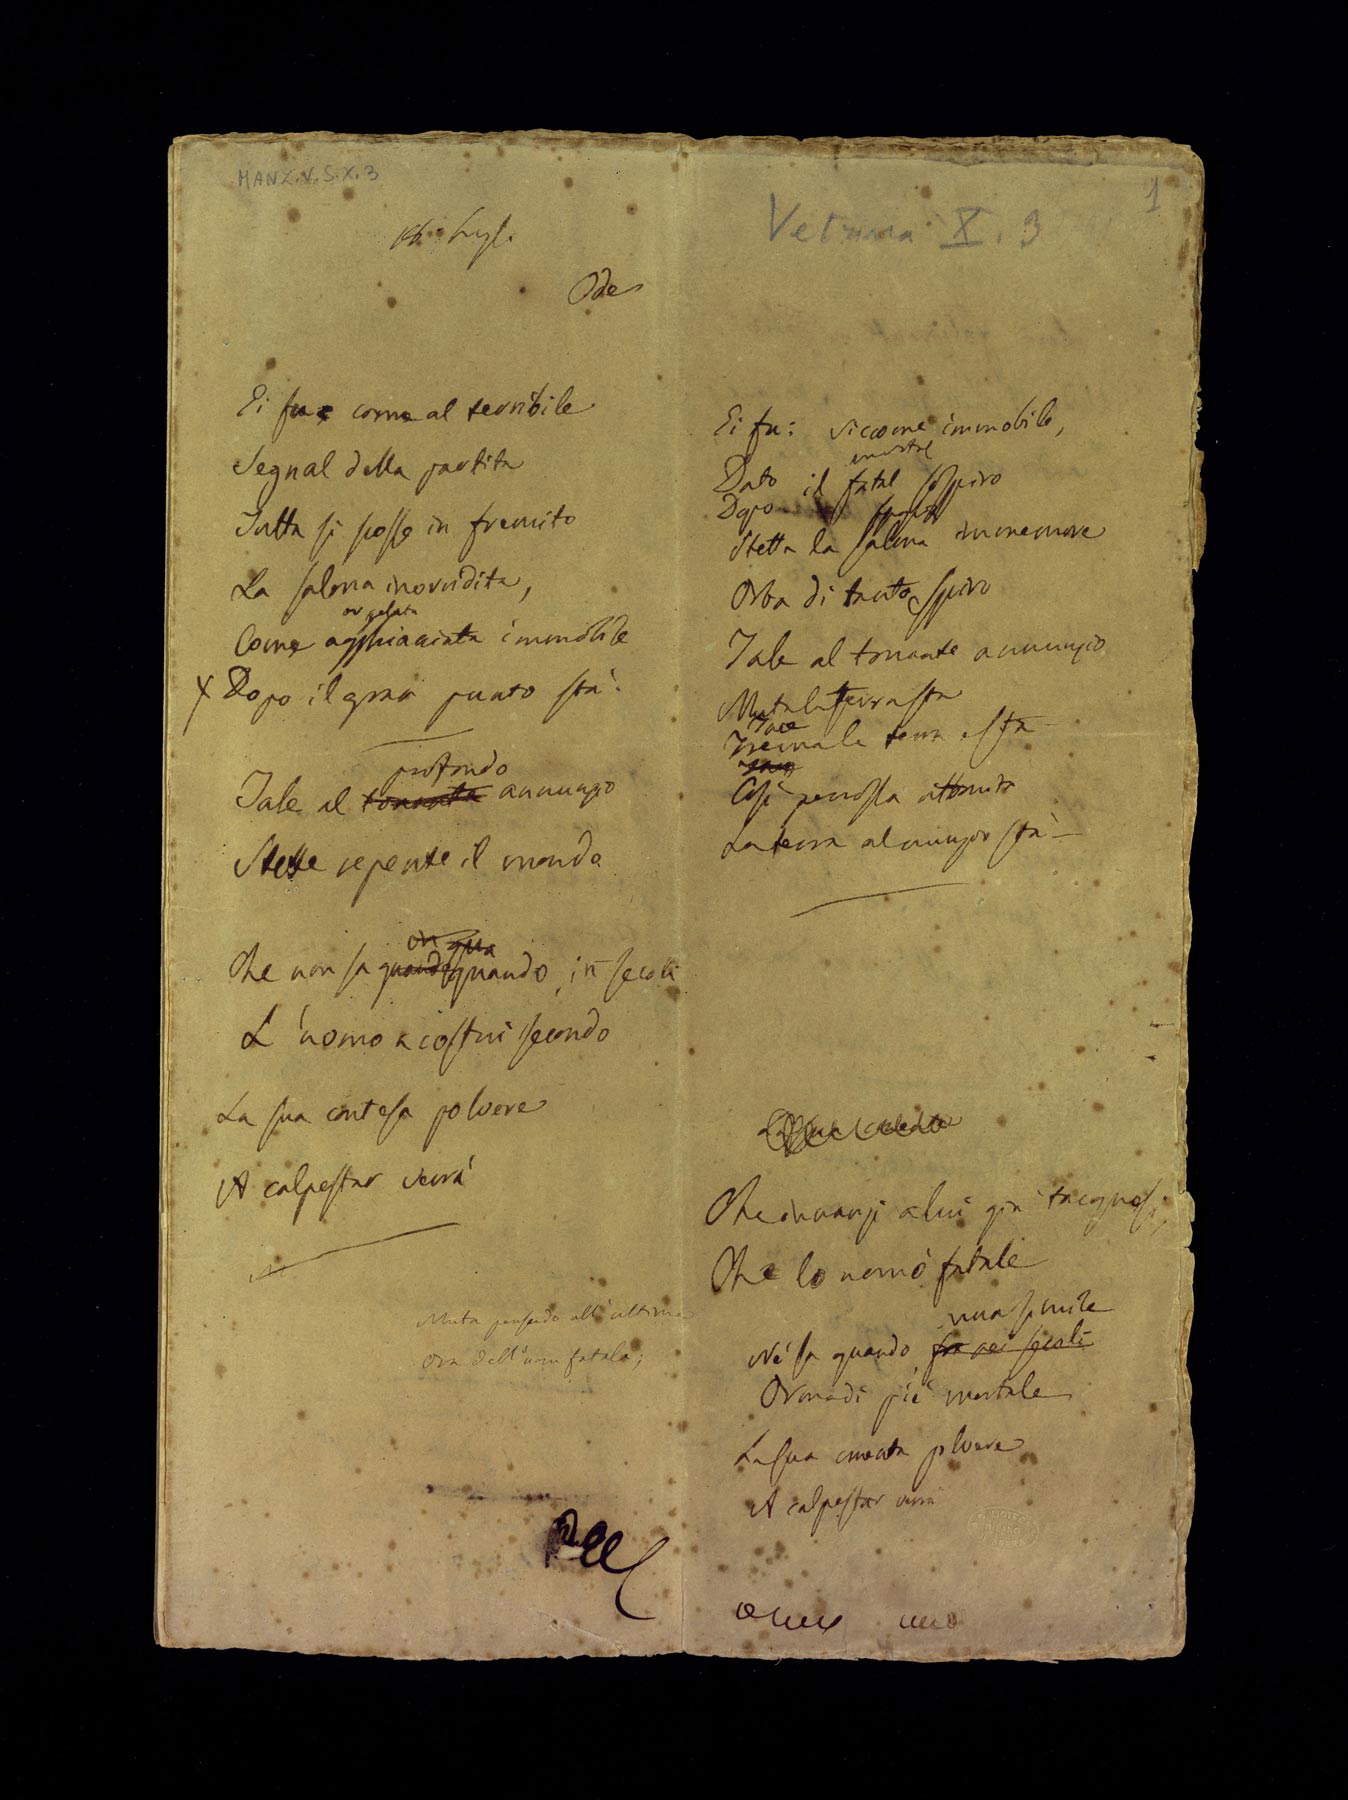 MANZ.V.S.X.3
Vetrina X. 3
1
Luglio
Ode
Ei fu e come al terribile
Segnal della partita
Tutta si scosse in fremito
La salma inorridita,
or gelata
Come agghiacciata immobile
X Dopo il gran punto sta:
profondo
Tale al tonante annunzio
Stette repente il mondo
orma
Che non sa quando quando, in secoli
L'uomo a costui secondo
La sua contesa polvere
A calpestar verrà
Muta pensando all'ultima
Ora dell'uom fatale;
Ei fu: siccome immobile,
mortal
Dato il fatal sospiro
Dopo
Stette la salma immemore
Orba di tanto spiro
Tale al tonante annunzio
Muta la terra sta
Tace
Trema la terra e sta
Così percossa attonita
La terra al nunzio sta
Che innanzi a lui già tacquesi,
Che lo nomò fatale
una simile
Né sa quando, fra sei secoli
Orma di piè mortale
La sua cruenta polvere
A calpestar verrà